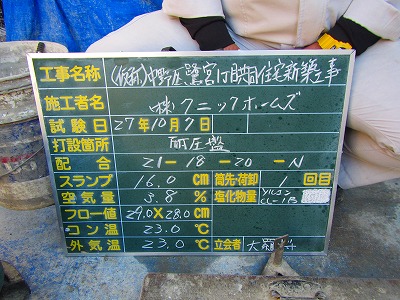 工事名称 (仮称)中野区鷺宮1丁目共同住宅新築工事
施工者名 (株)クニックホームズ
試験日 27年10月7日
打設箇所 耐圧盤
配合 21-18-20-N
スランプ 16.0 cm 筒先・荷卸 1 回目
空気量 3.8 % 塩化物量
フロー値 29.0×28.0 cm
コン温 23.0 ℃
外気温 23.0 ℃ 立会者